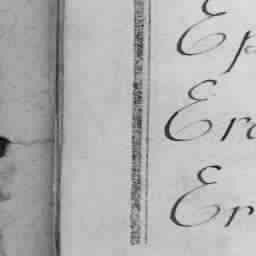 Ep
Era
Er